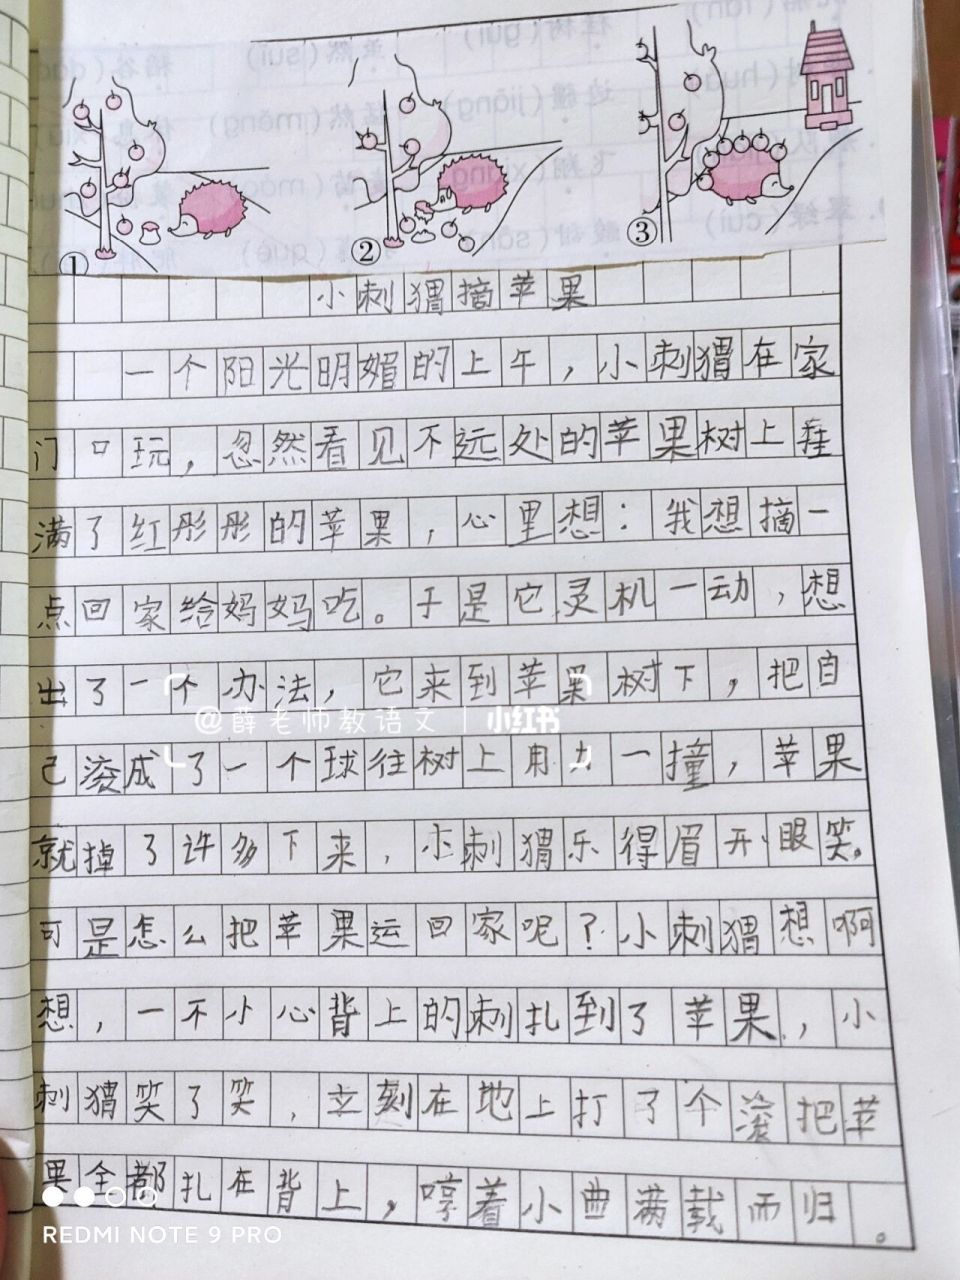 稻谷(dao
虽然(suī)
桂树(guì)
(huà)
休息(xiū
猛然(měng)
边疆(jiāng)
飞翔(xiáng)
队
酸甜(suān)
翠绿(cuì)
① ② ③
小刺猬摘苹果
一个阳光明媚的上午，小刺猬在家
门口玩，忽然看见不远处的苹果树上挂
满了红彤彤的苹果，心里想：我想摘一
点回家给妈妈吃。于是它灵机一动，想
出了一个办法，它来到苹果树下，把自
@薛老师教语文 | 小红书
己滚成了一个球往树上用力一撞，苹果
就掉了许多下来，小刺猬乐得眉开眼笑。
可是怎么把苹果运回家呢？小刺猬想啊
想，一不小心背上的刺扎到了苹果，小
刺猬笑了笑，立刻在地上打了个滚把苹
果全都扎在背上，哼着小曲满载而归。
REDMI NOTE 9 PRO